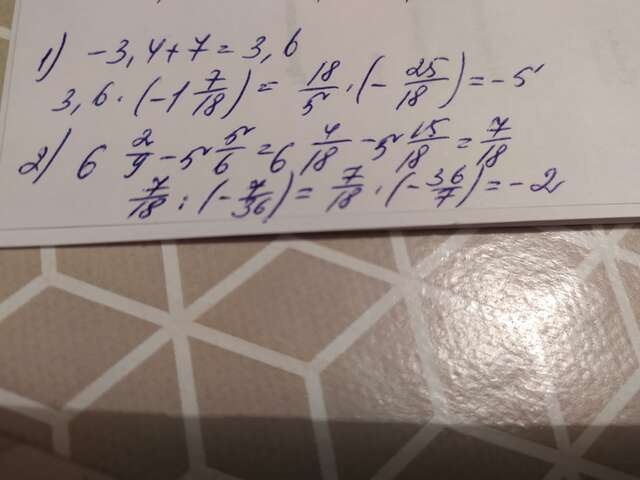 1) -3,4+7=3,6
3,6·(-1 7/18)= 18/5·(-25/18)=-5
2) 6 2/9-5 5/6=6 4/18-5 15/18=7/18
7/18:(-7/36)=7/18·(-36/7)=-2